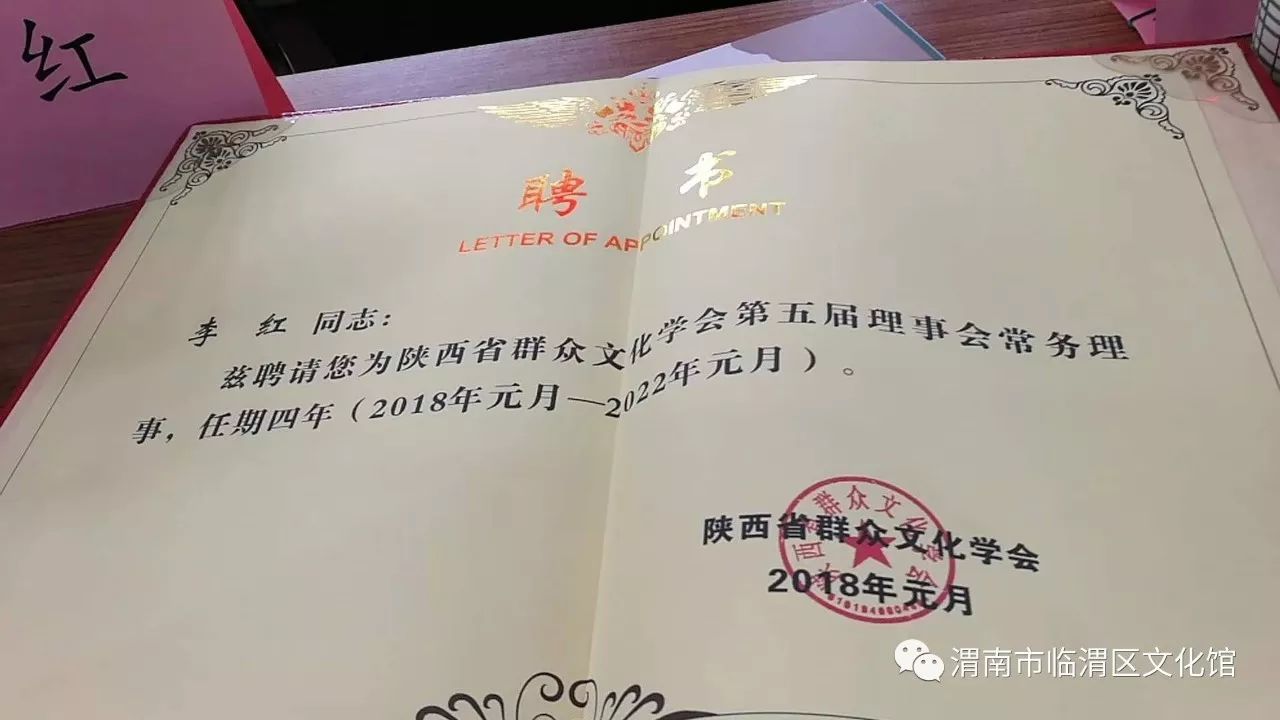 红
聘 书
LETTER OF APPOINTMENT
李 红 同志:
兹聘请您为陕西省群众文化学会第五届理事会常务理
事,任期四年(2018年元月—2022年元月)。
陕西省群众文化学会
2018年元月
陕西省群众文化学会
渭南市临渭区文化馆